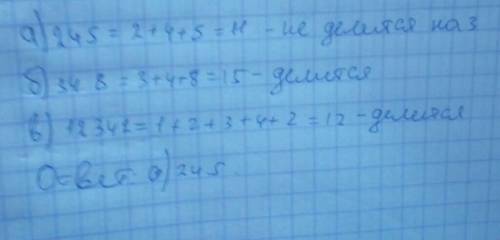 а) 245 = 2+4+5 = 11 - не делится на 3
б) 348 = 3+4+8 = 15 - делится
в) 12342 = 1+2+3+4+2 = 12 - делится
Ответ: а) 245.